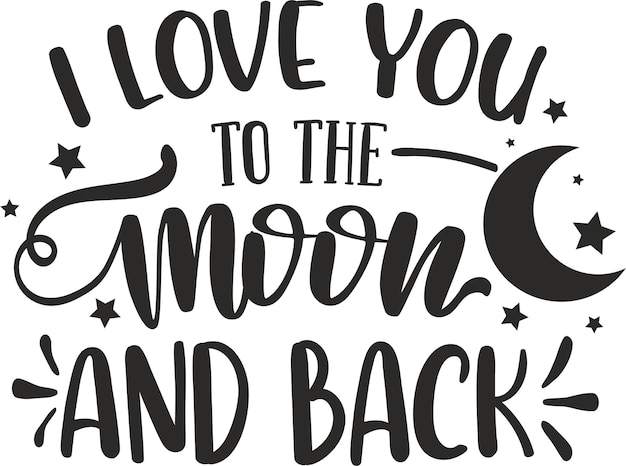 I LOVE YOU
TO THE
moon
AND BACK